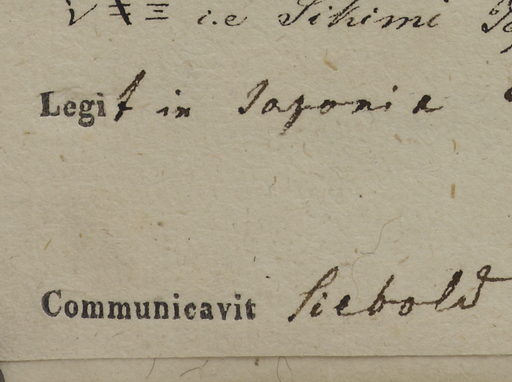 シキミ i.e Sikimi
Legit in Japonia
Communicavit Siebold